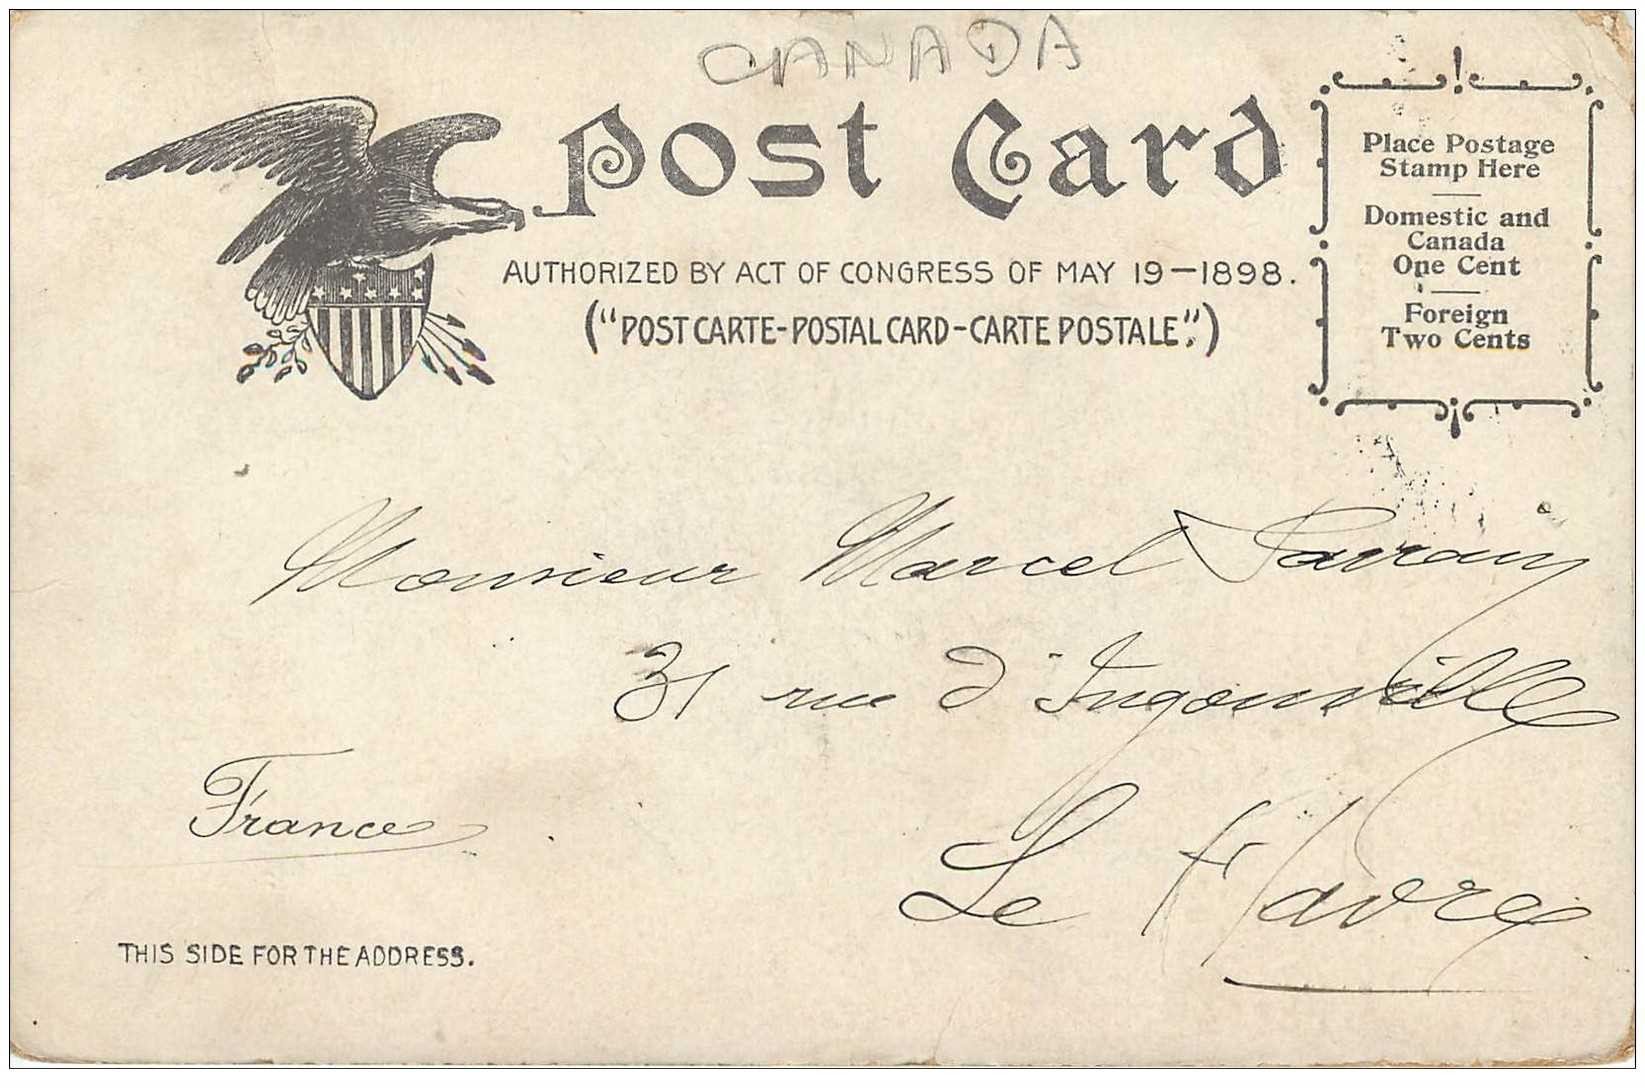 CANADA
Post Card
AUTHORIZED BY ACT OF CONGRESS OF MAY 19-1898.
("POST CARTE-POSTAL CARD-CARTE POSTALE".)
Place Postage
Stamp Here
Domestic and
Canada
One Cent
Foreign
Two Cents
Monsieur Marcel
31 rue d'Ingouville
Le Havre
France
THIS SIDE FOR THE ADDRESS.